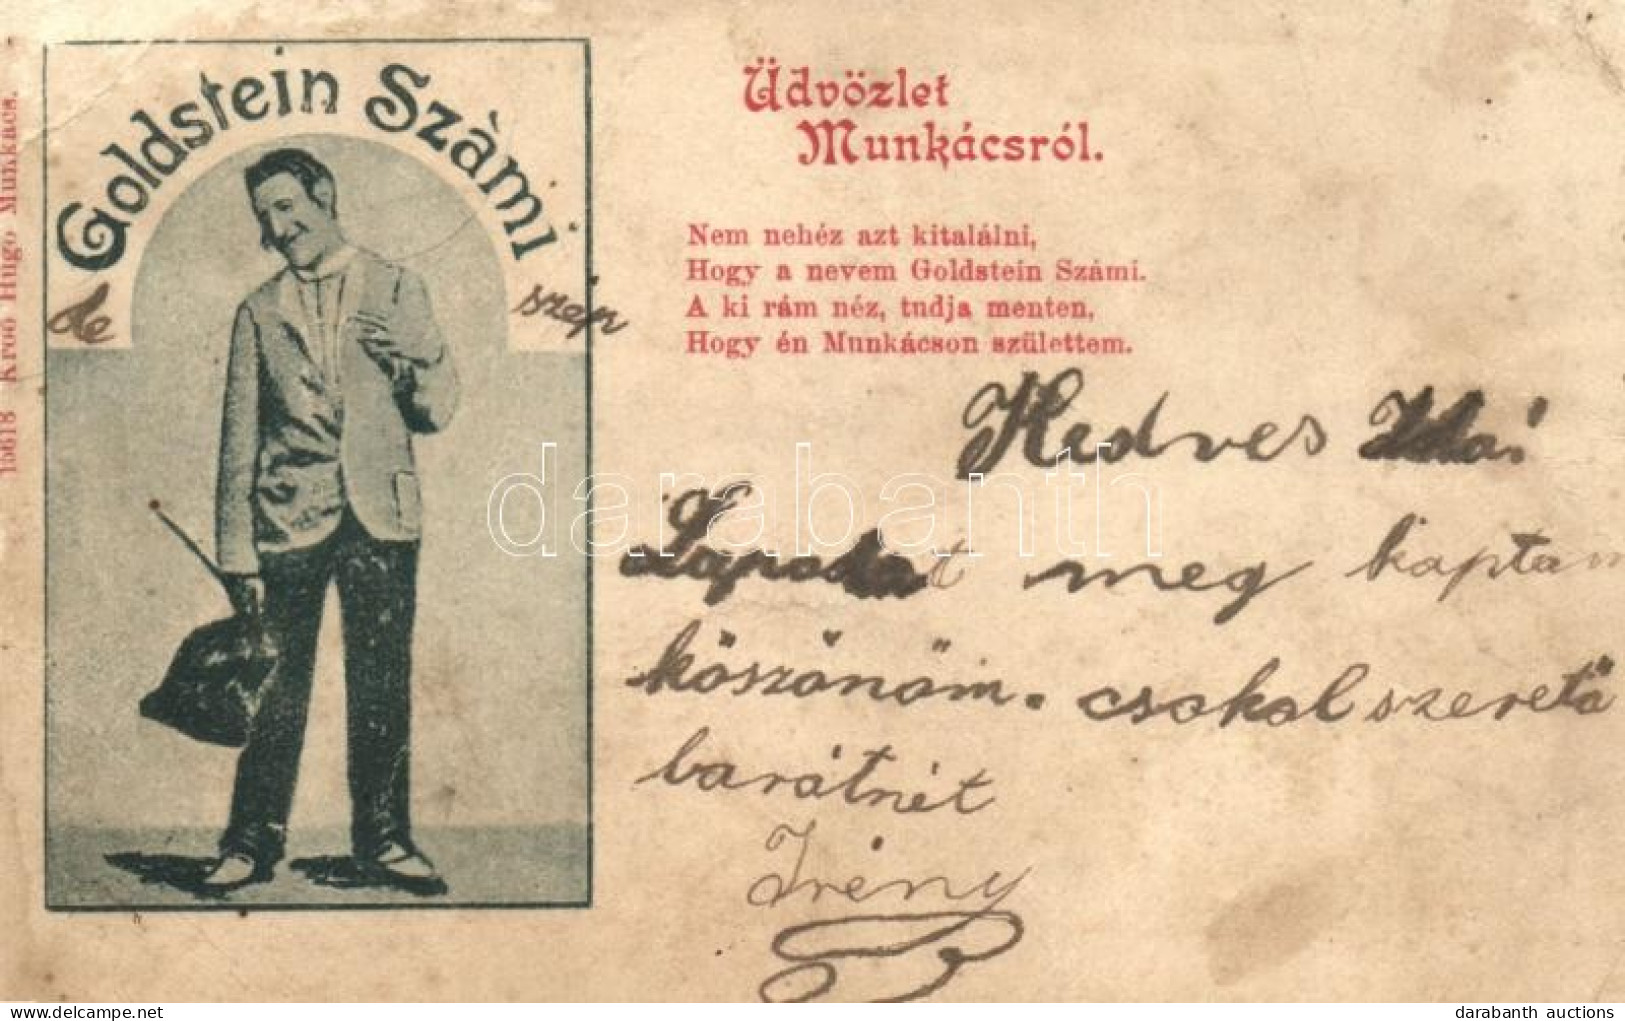 Goldstein Szàmi
de szép
15618 Kroó Hugo Munkács.
Üdvözlet
Munkácsról.
Nem nehéz azt kitalálni,
Hogy a nevem Goldstein Számi.
A ki rám néz, tudja menten,
Hogy én Munkácson születtem.
Hedves
meg kaptam
köszönöm. csokol szerető
barátnét
Irény
darabanth
© darabanth.com
darabanth auctions